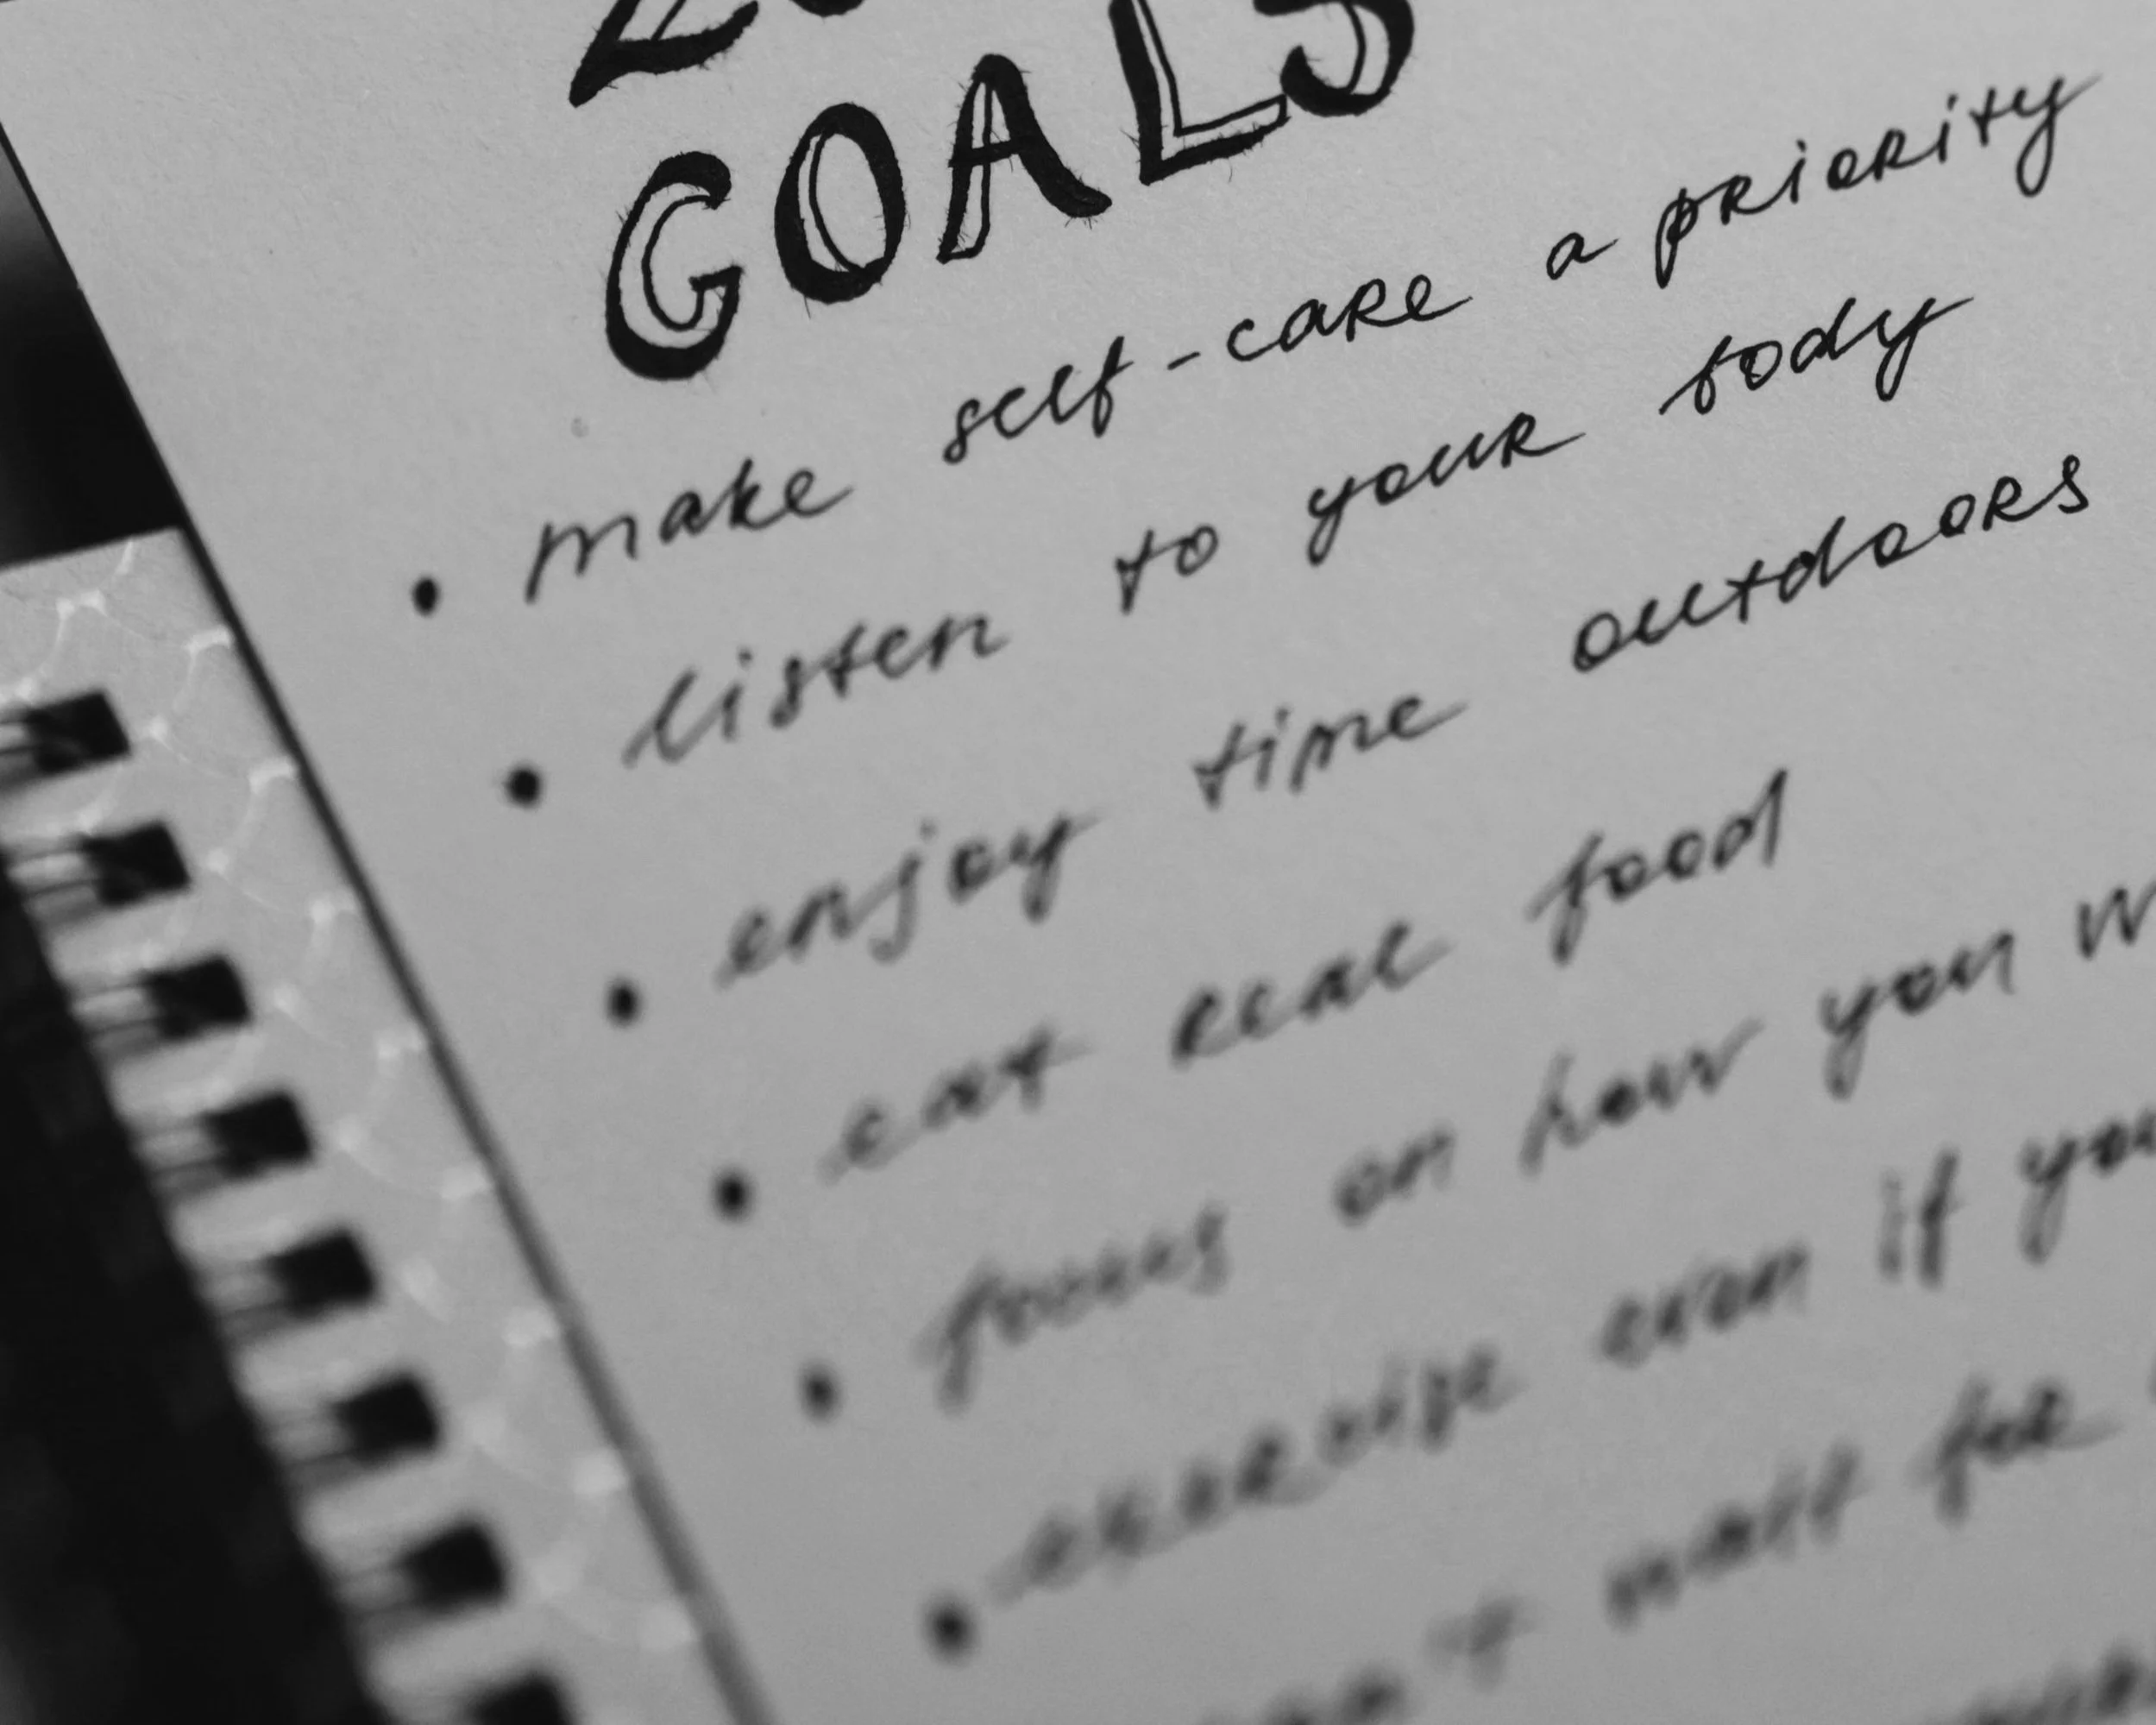 GOALS
• make self-care a priority
• listen to your body
• enjoy time outdoors
• eat real food
• focus on how you
• exercise even if you
wait for